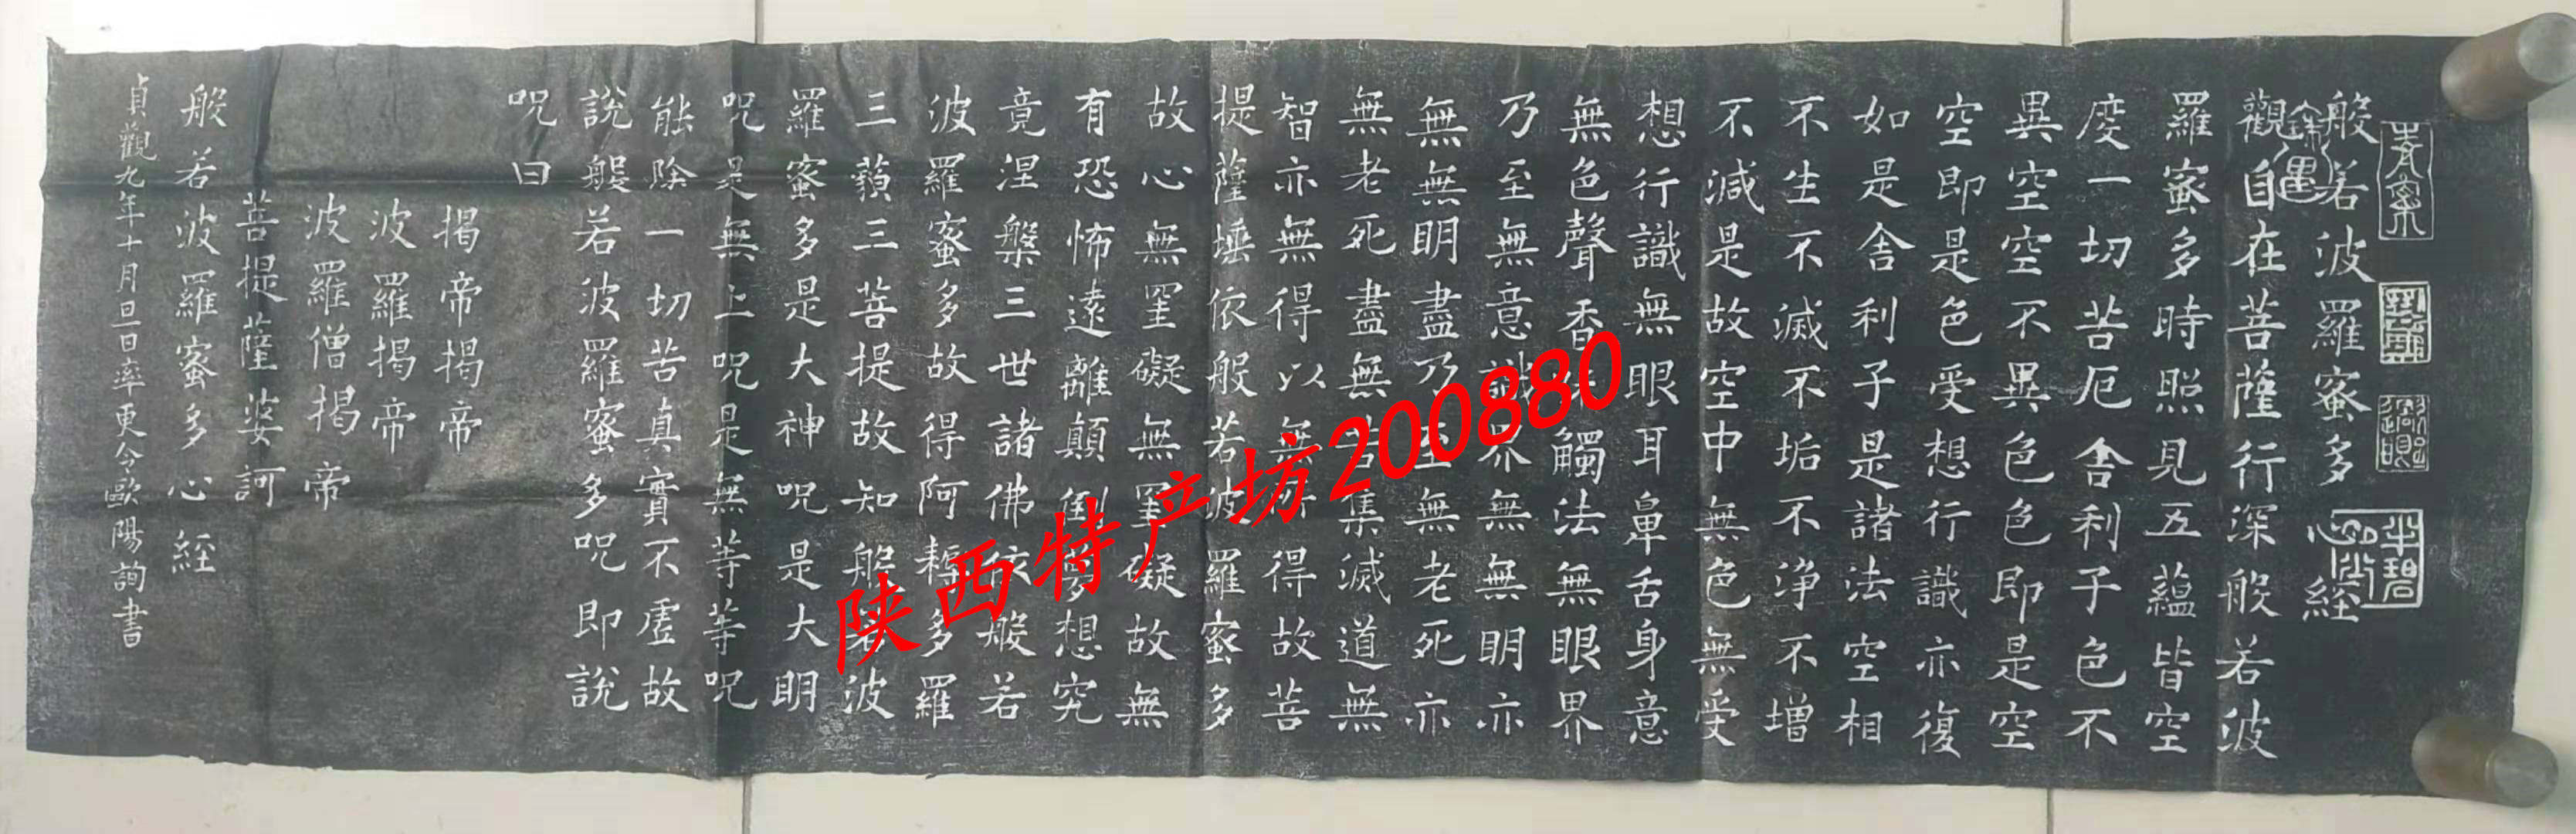 般若波羅蜜多心經
觀自在菩薩行深般若波
羅蜜多時照見五蘊皆空
度一切苦厄舍利子色不
異空空不異色色即是空
空即是色受想行識亦復
如是舍利子是諸法空相
不生不滅不垢不淨不增
不減是故空中無色無受
想行識無眼耳鼻舌身意
無色聲香味觸法無眼界
乃至無意識界無無明亦
無無明盡乃至無老死亦
無老死盡無苦集滅道無
智亦無得以無所得故菩
提薩埵依般若波羅蜜多
故心無罣礙無罣礙故無
有恐怖遠離顛倒夢想究
竟涅槃三世諸佛依般若
波羅蜜多故得阿耨多羅
三藐三菩提故知般若波
羅蜜多是大神呪是大明
呪是無上呪是無等等呪
能除一切苦真實不虛故
說般若波羅蜜多呪即說
呪曰
揭帝揭帝
波羅揭帝
波羅僧揭帝
菩提薩婆訶
般若波羅蜜多心經
貞觀九年十月旦日率更令歐陽詢書
陕西特产坊200880